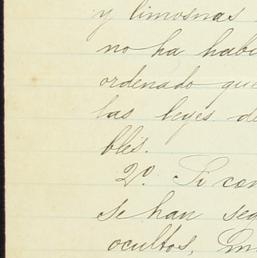 y limosnas
no ha habi
ordenado que
las leyes de
bles.
2º. Si con
se han seg
ocultos,